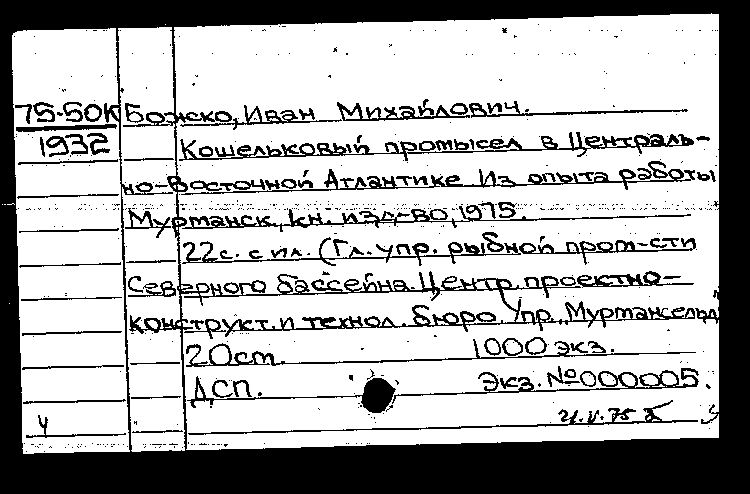 75-50К Божко, Иван Михайлович.
1932 Кошельковый промысел в Централь-
но-Восточной Атлантике. Из опыта работы
Мурманск, кн. изд-во, 1975.
22с. с ил. (Гл. упр. рыбной пром-сти
Северного бассейна. Центр. проектно-
конструкт. и технол. бюро. Упр. „Мурмансельд"
20 ст. 1000 экз.
ДСП. Экз. №000005.
4 21.V.75